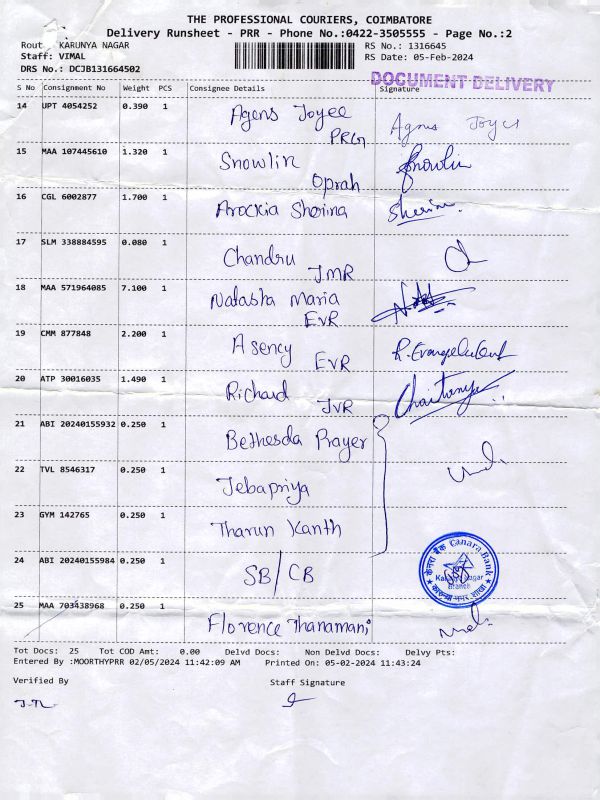 THE PROFESSIONAL COURIERS, COIMBATORE
Delivery Runsheet - PRR - Phone No.:0422-3505555 - Page No.:2
Rout KARUNYA NAGAR RS No.: 1316645
Staff: VIMAL RS Date: 05-Feb-2024
DRS No.: DCJB131664502
DOCUMENT DELIVERY
S No Consignment No Weight PCS Consignee Details Signature
14 UPT 4054252 0.390 1 Agens Joyee Agnus Joyce
PRGn
15 MAA 107445610 1.320 1 Snowlin Snowlin
Oprah
16 CGL 6002877 1.700 1 Arockia Sherina Sherin
17 SLM 338884595 0.080 1 Chandru
JMR
18 MAA 571964085 7.100 1 Natasha Maria
EVR
19 CMM 877848 2.200 1 Asency
EVR
20 ATP 30016035 1.490 1 Richard Chaitanya
JVR
21 ABI 20240155932 0.250 1 Bethesda Prayer
22 TVL 8546317 0.250 1 Jebapriya
23 GYM 142765 0.250 1 Tharun Kanth
24 ABI 20240155984 0.250 1 SB/CB
केनरा बैंक Canara Bank
Karunya Nagar
Branch
कारुण्या नगर शाखा
25 MAA 703438968 0.250 1 Florence Thanamani
Tot Docs: 25 Tot COD Amt: 0.00 Delvd Docs: Non Delvd Docs: Delvy Pts:
Entered By :MOORTHYPRR 02/05/2024 11:42:09 AM Printed On: 05-02-2024 11:43:24
Verified By Staff Signature